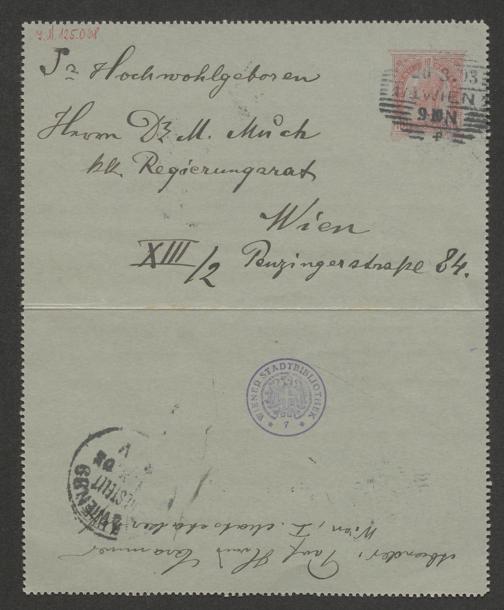 J.N. 125.038
Sr Hochwohlgeboren
Herrn Dr. M. Much
kk Regierungsrat
Wien
XIII/2 Penzingerstraße 84.
WIEN
9-10 N
WIENER STADTBIBLIOTHEK
7
WIEN 89
BESTELLT
Absender: Prof.
Wien, I.